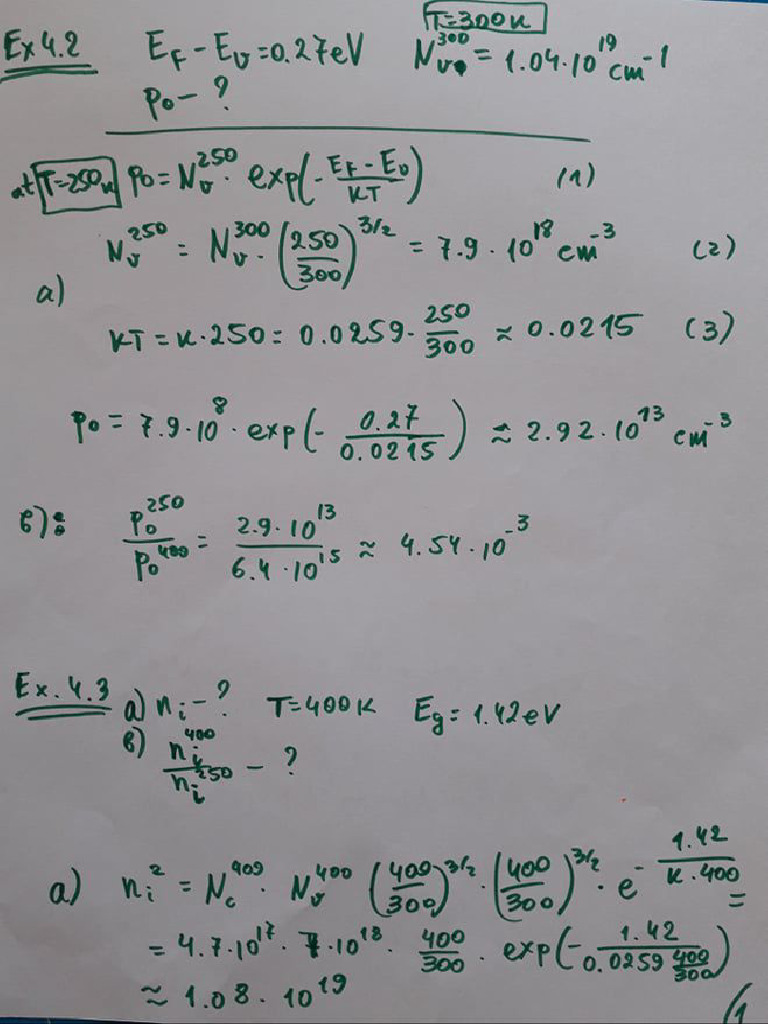 T=300K
Ex 4.2 E_F - E_v = 0.27eV N_v^300 = 1.04·10^19 cm^-1
p_0 - ?
at T=250K p_0 = N_v^250 · exp(-(E_F - E_v)/KT) (1)
N_v^250 = N_v^300 · (250/300)^3/2 = 7.9·10^18 cm^-3 (2)
a)
KT = K·250 = 0.0259·250/300 ≈ 0.0215 (3)
p_0 = 7.9·10^8 · exp(-0.27/0.0215) ≈ 2.92·10^13 cm^-3
b): p_0^250/p_0^400 = 2.9·10^13/6.4·10^15 ≈ 4.54·10^-3
Ex. 4.3 a) n_i - ? T=400K E_g = 1.42eV
b) n_i^400/n_i^250 - ?
a) n_i^2 = N_c^400 · N_v^400 (400/300)^3/2 · (400/300)^3/2 · e^-1.42/K·400 =
= 4.7·10^17 · 7·10^18 · 400/300 · exp(-1.42/0.0259 400/300)
≈ 1.08·10^19